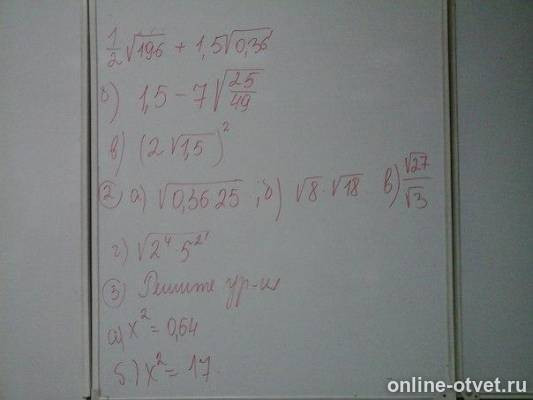 1/2 √196 + 1,5√0,36
б) 1,5 - 7√25/49
в) (2√1,5)²
② а) √0,36 25 ; б) √8 · √18 в) √27/√3
г) √2⁴ · 5²
③ Решите ур-ия
а) x² = 0,64
б) x² = 17
online-otvet.ru